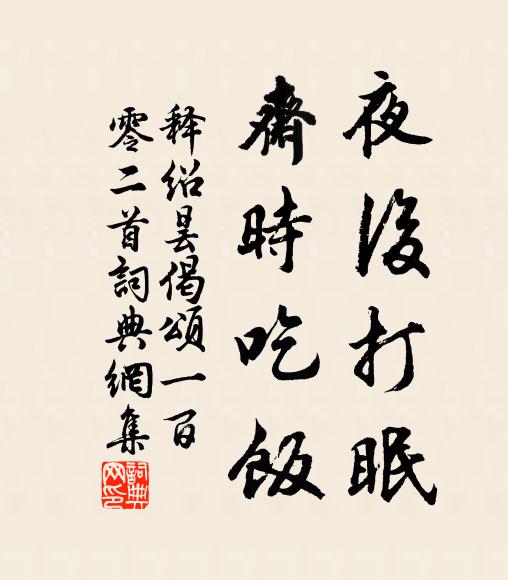 夜後打眠
齋時吃飯
釋紹曇偈頌一百
零二首詞典網集
詞典
网印